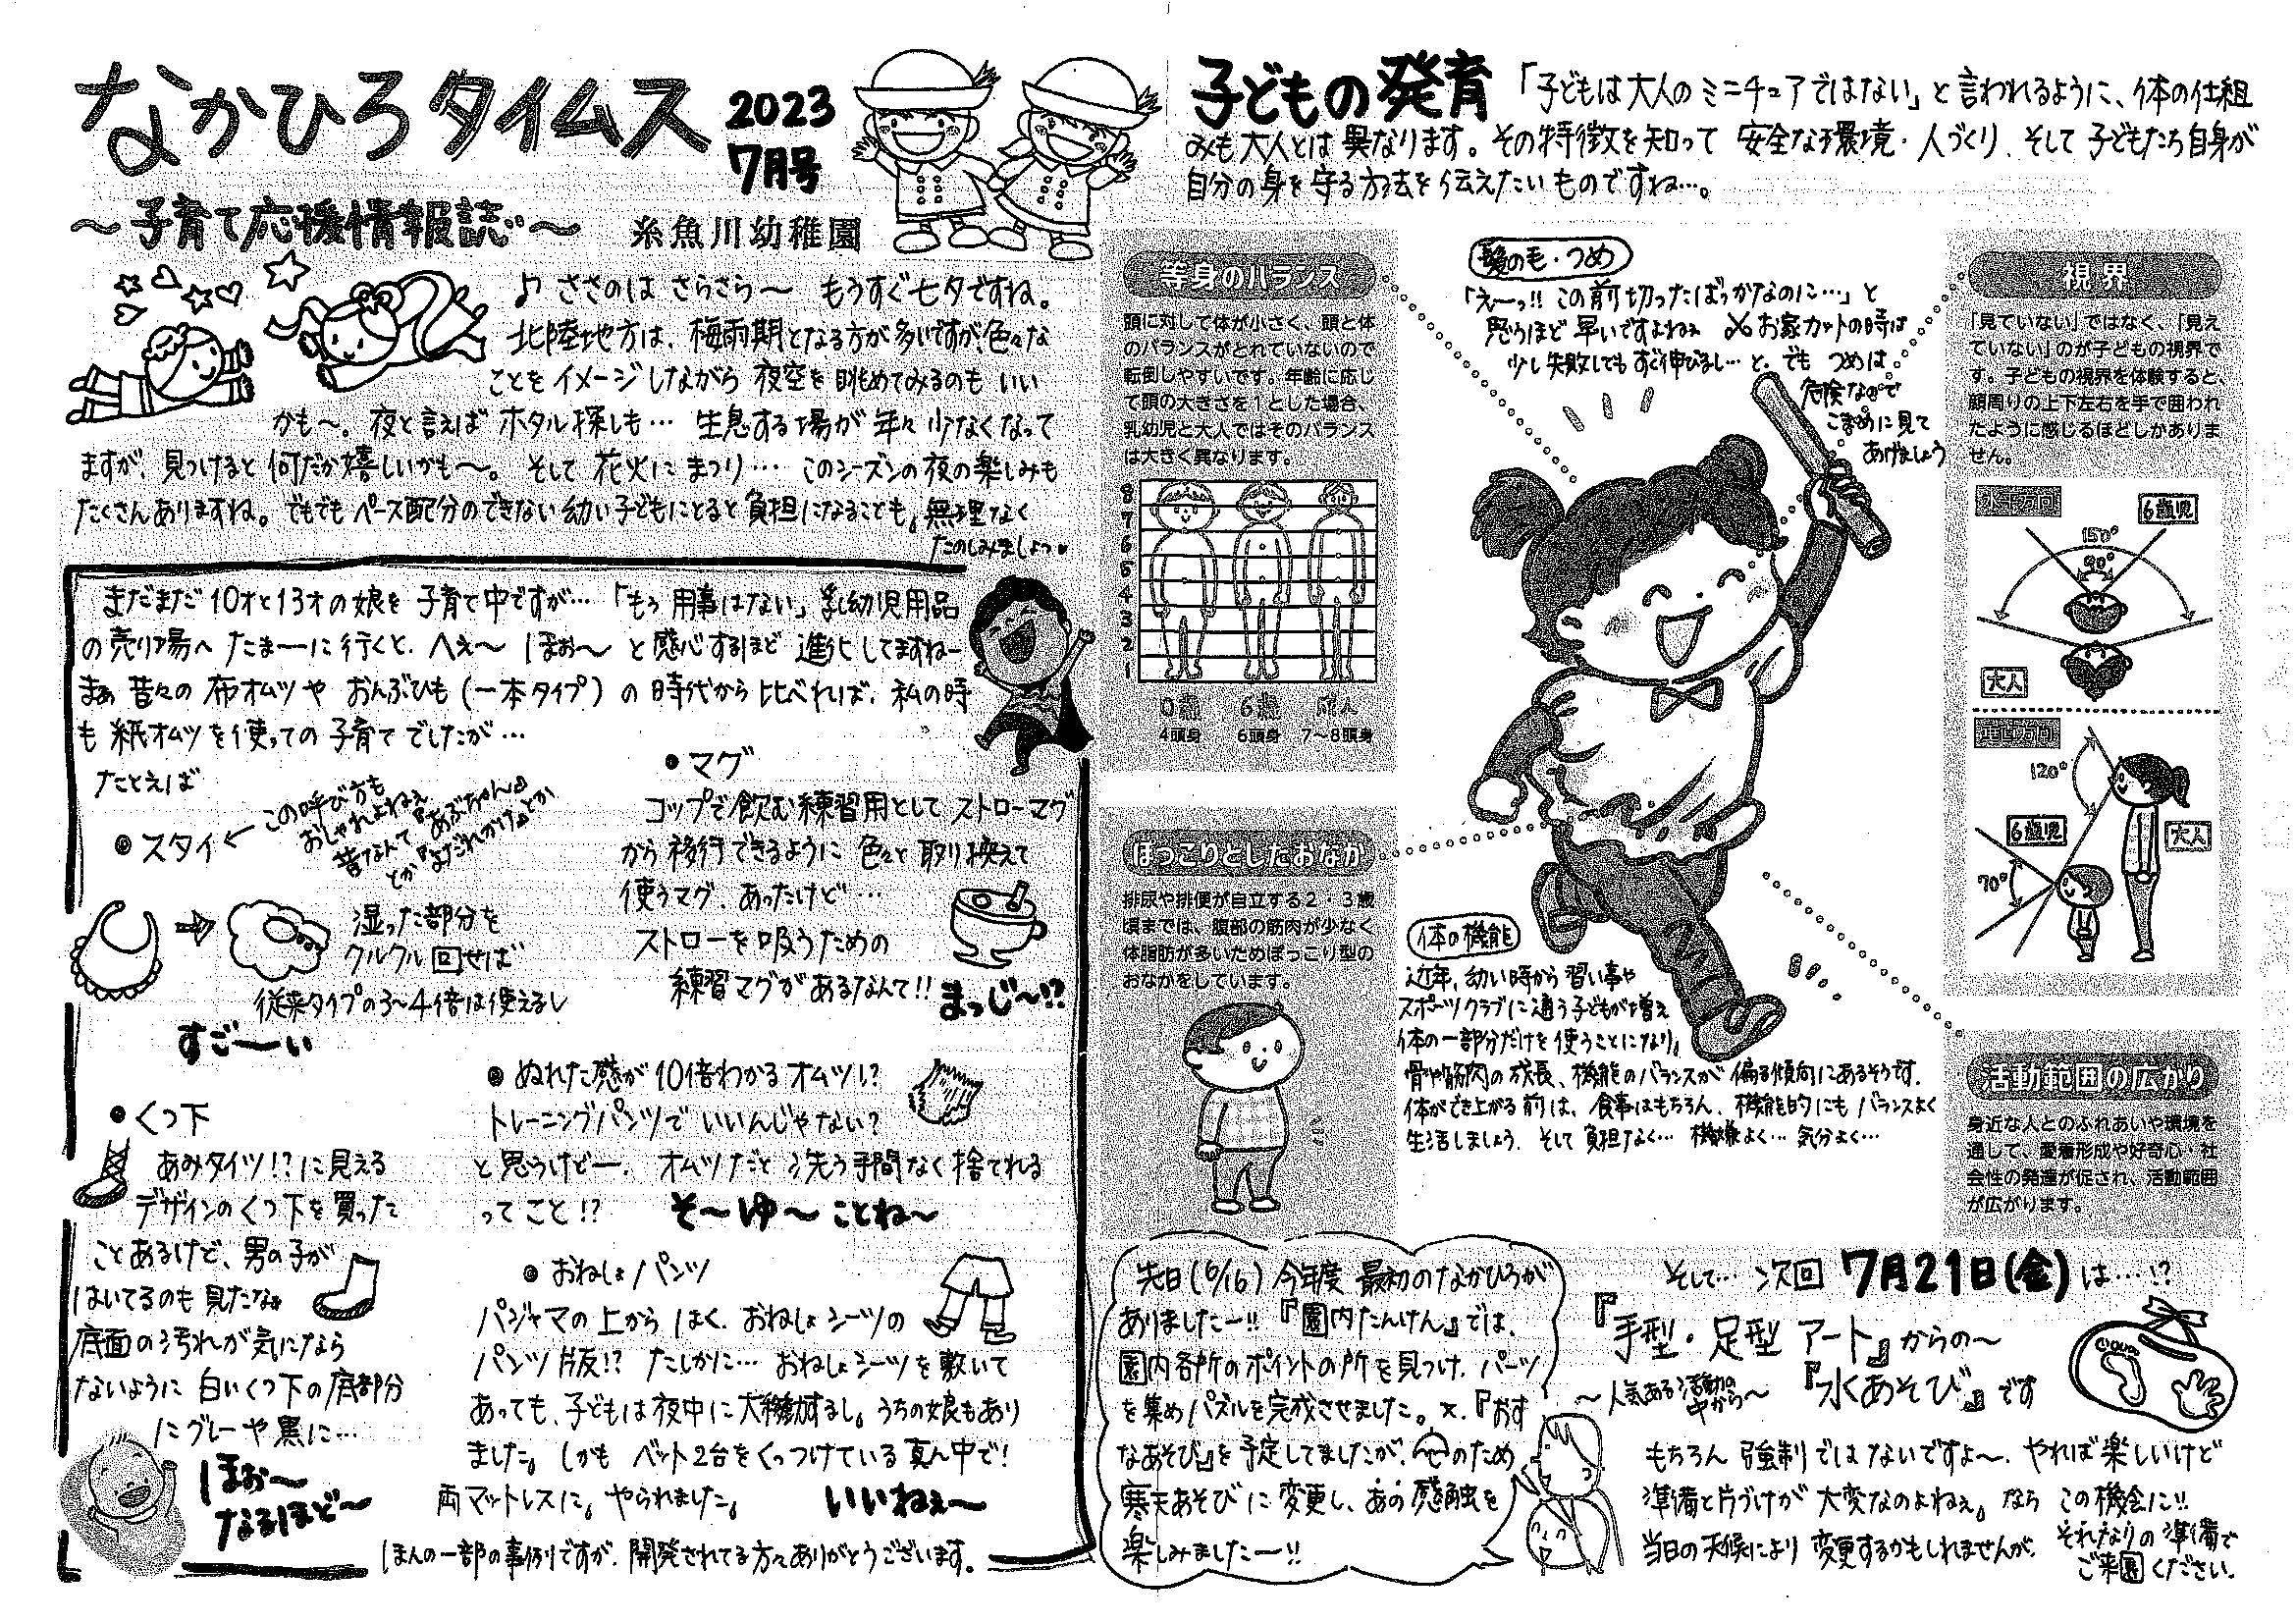 なかひろタイムス
2023
7月号
～子育て応援情報誌～
糸魚川幼稚園
♪ ささのは さらさら～ もうすぐ七夕ですね。
北陸地方は、梅雨期となる方が多いですが、色々な
ことをイメージしながら 夜空を眺めてみるのも いい
かも～。夜と言えば ホタル探しも… 生息する場が年々少なくなって
ますが、見つけると何だか嬉しいかも～。そして 花火に まつり… このシーズンの夜の楽しみも
たくさんありますね。でもでも ペース配分のできない幼い子どもにとると負担になることも。無理なく
たのしみましょっ♥
まだまだ10才と13才の娘を 子育て中ですが…「もう用事はない」乳幼児用品
の売り場へ たまーに行くと、へぇ～ ほぉ～ と感心するほど 進化してますねー
まぁ 昔々の 布オムツや おんぶひも(一本タイプ)の時代から比べれば、私の時
も 紙オムツを使っての子育てでしたが…
たとえば
●スタイ←
この呼び方も
おしゃれよねぇ
昔なんて『あぶちゃん』
とか『よだれかけ』とか
湿った部分を
クルクル回せば
従来タイプの3～4倍は使えるし
すごーい
●マグ
コップで飲む練習用として ストローマグ
から移行できるように 色々と取り換えて
使うマグ、あったけど…
ストローを吸うための
練習マグがあるなんて!!
まっじ～!?
●くつ下
あみタイツ!?に見える
デザインのくつ下を買った
ことあるけど、男の子が
はいてるのも見たなぁ
底面の汚れが気になら
ないように 白いくつ下の底部分
にグレーや黒に…
ほぉ～
なるほど～
●ぬれた感が10倍わかるオムツ!?
トレーニングパンツで いいんじゃない?
と思うけどー、オムツだと 洗う手間なく捨てれる
ってこと!? そ～ゆ～ことね～
●おねしょパンツ
パジャマの上から はく、おねしょシーツの
パンツ版!? たしかに… おねしょシーツを敷いて
あっても、子どもは夜中に大移動するし。うちの娘もあり
ました。しかも ベット2台をくっつけている真ん中で!
両マットレスに。やられました。 いいねぇ～
ほんの一部の事例ですが、開発されてる方々ありがとうございます。
子どもの発育
「子どもは大人のミニチュアではない」と言われるように、体の仕組
みも大人とは異なります。その特徴を知って 安全な環境・人づくり、そして子どもたち自身が
自分の身を守る方法を伝えたいものですね…。
等身のバランス
頭に対して体が小さく、頭と体
のバランスがとれていないので
転倒しやすいです。年齢に応じ
て頭の大きさを1とした場合、
乳幼児と大人ではそのバランス
は大きく異なります。
8
7
6
5
4
3
2
1
0歳 6歳 成人
4頭身 6頭身 7～8頭身
ぽっこりとしたおなか
排尿や排便が自立する2・3歳
頃までは、腹部の筋肉が少なく
体脂肪が多いためぽっこり型の
おなかをしています。
髪の毛・つめ
「え～っ!! この前切ったばっかなのに…」と
思うほど 早いですよねぇ お家カットの時は
少し失敗してもすぐ伸びるし…と。でも つめは
危険なので
こまめに見て
あげましょう
体の機能
近年、幼い時から 習い事や
スポーツクラブに通う子どもが増え
体の一部分だけを使うことになり。
骨や筋肉の成長、機能のバランスが 偏る傾向にあるそうです。
体ができ上がる前は、食事はもちろん、機能的にも バランスよく
生活しましょう、そして負担なく… 機嫌よく… 気分よく…
視界
「見ていない」ではなく、「見え
ていない」のが子どもの視界で
す。子どもの視界を体験すると、
顔周りの上下左右を手で囲われ
たように感じるほどしかありま
せん。
水平方向
6歳児
150°
90°
大人
垂直方向
120°
6歳児
大人
70°
活動範囲の広がり
身近な人とのふれあいや環境を
通して、愛着形成や好奇心・社
会性の発達が促され、活動範囲
が広がります。
先日(6/16)今年度 最初のなかひろが
ありましたー!!『園内たんけん』では、
園内各所のポイントの所を見つけ、パーツ
を集めパズルを完成させました。又、『おす
なあそび』を予定してましたが、のため
寒天あそびに変更し、あの感触を
楽しみましたー!!
そして… 次回 7月21日(金)は…!?
『手型・足型 アート』からの～
～人気ある活動の
中から～
『水あそび』です
もちろん 強制ではないですよ～、やれば楽しいけど
準備と片づけが 大変なのよねぇ。なら この機会に!!
当日の天候により 変更するかもしれませんが、それなりの準備で
ご来園ください。